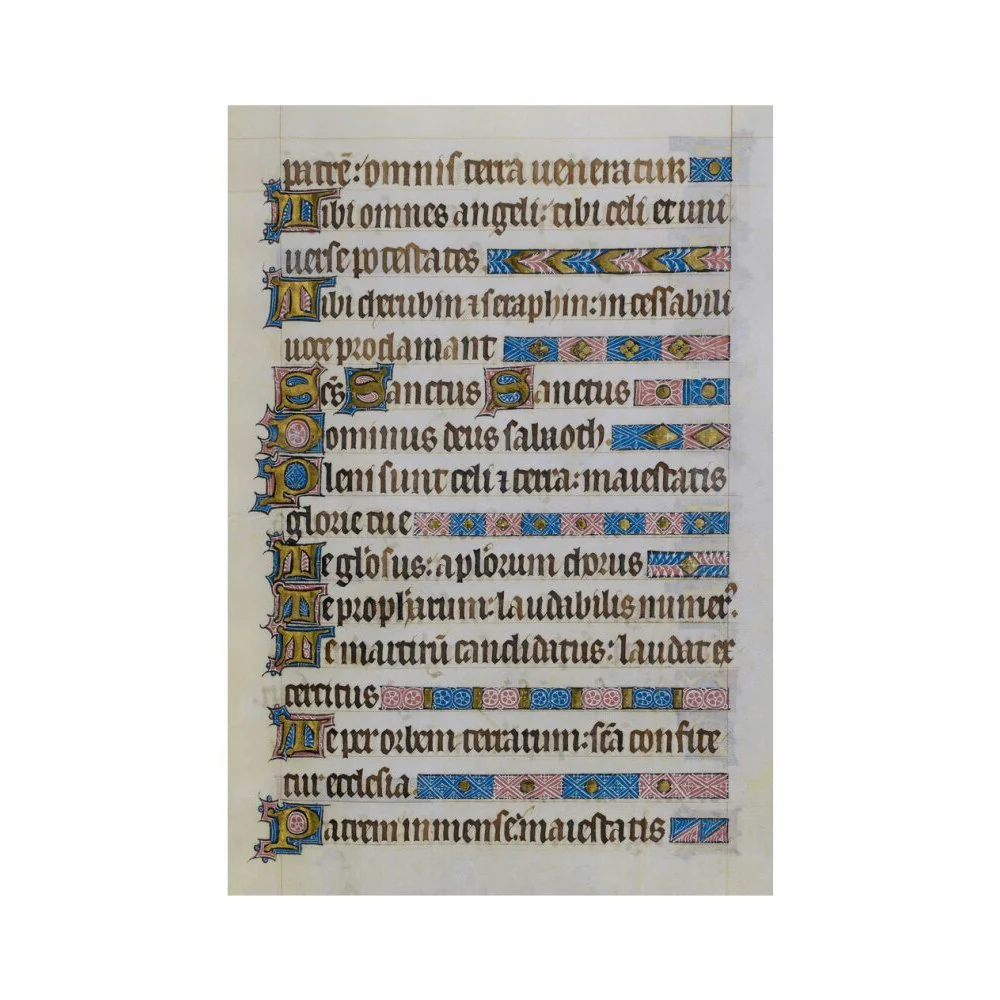 patrē: omnis terra ueneratur
Tibi omnes angeli: tibi celi et uni
uerse potestates
Tibi cherubin ⁊ seraphin: incessabili
uoce proclamant
Scs̄ Sanctus Sanctus
Dominus deus sabaoth.
Pleni sunt celi ⁊ terra: maiestatis
glorie tue
Te glōsus: aplōrum chorus
Te prophārum: laudabilis numerꝰ.
Te martirū candidatus: laudat ex
ercitus
Te per orbem terrarum: scā confite
tur ecclesia.
Patrem inmense maiestatis